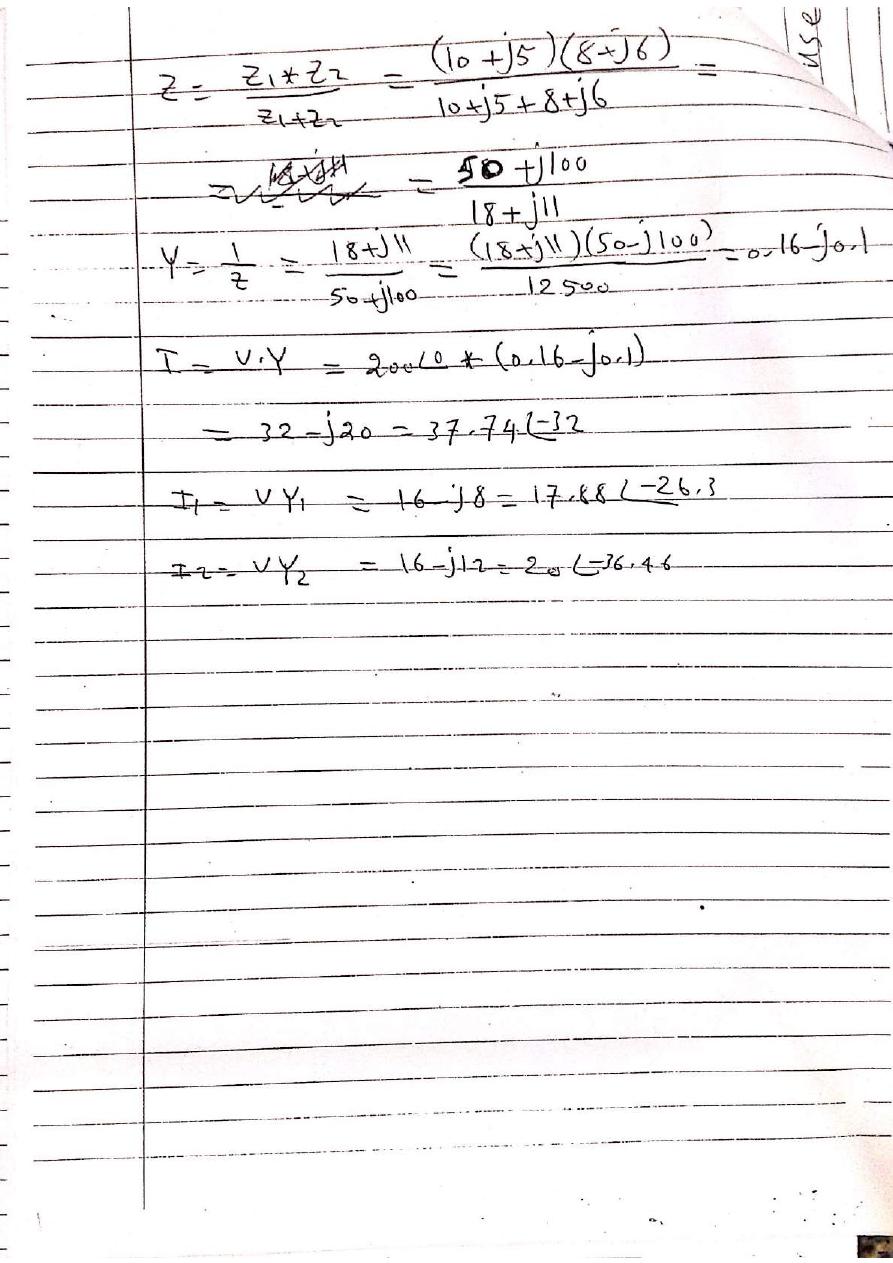 use
Z = Z1 * Z2 / Z1 + Z2 = (10 + j5)(8 + j6) / 10 + j5 + 8 + j6 =
= = 50 + j100 / 18 + j11
Y = 1 / Z = 18 + j11 / 50 + j100 = (18 + j11)(50 - j100) / 12500 = 0.16 - j0.1
I = V.Y = 200∠0 * (0.16 - j0.1)
= 32 - j20 = 37.74∠-32
I1 = VY1 = 16 - j8 = 17.88∠-26.3
I2 = VY2 = 16 - j12 = 20∠-36.46